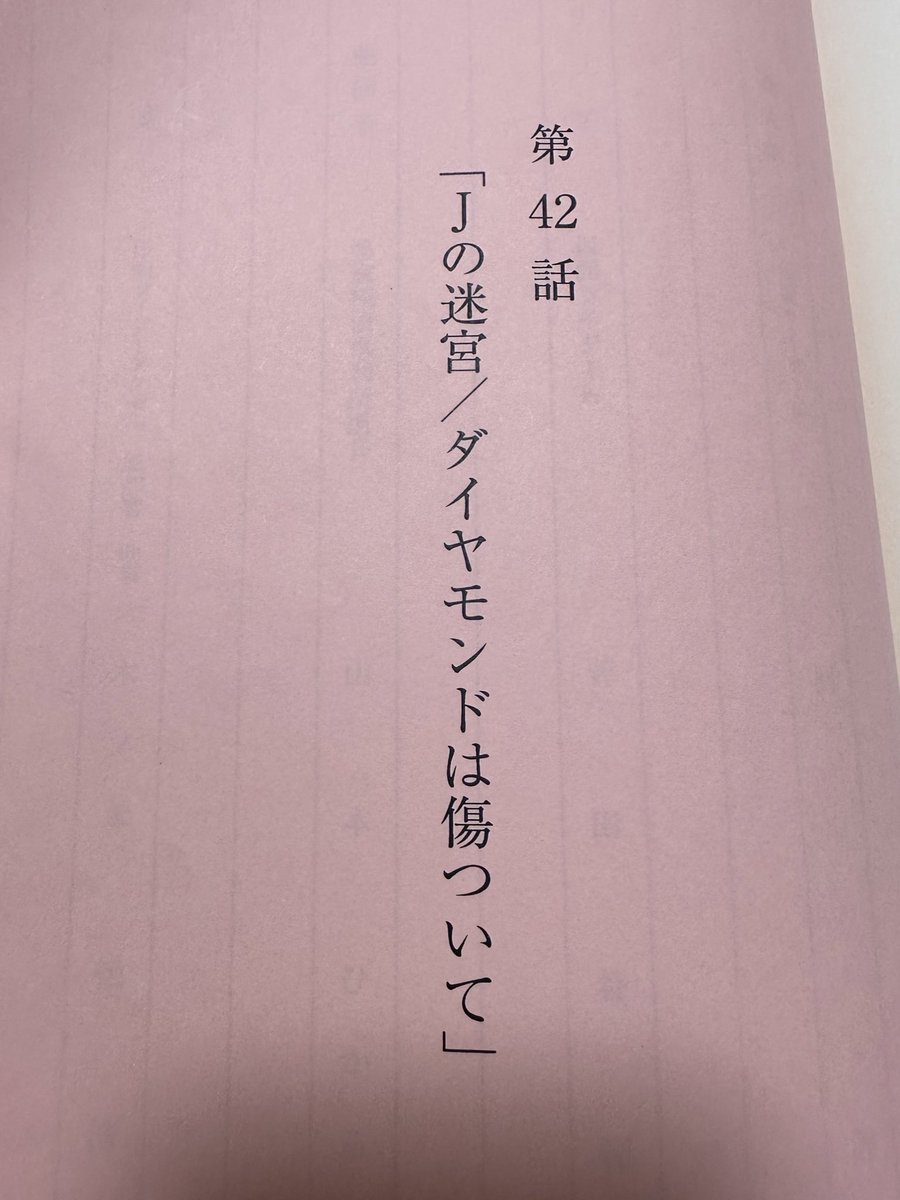 第42話
「Jの迷宮／ダイヤモンドは傷ついて」